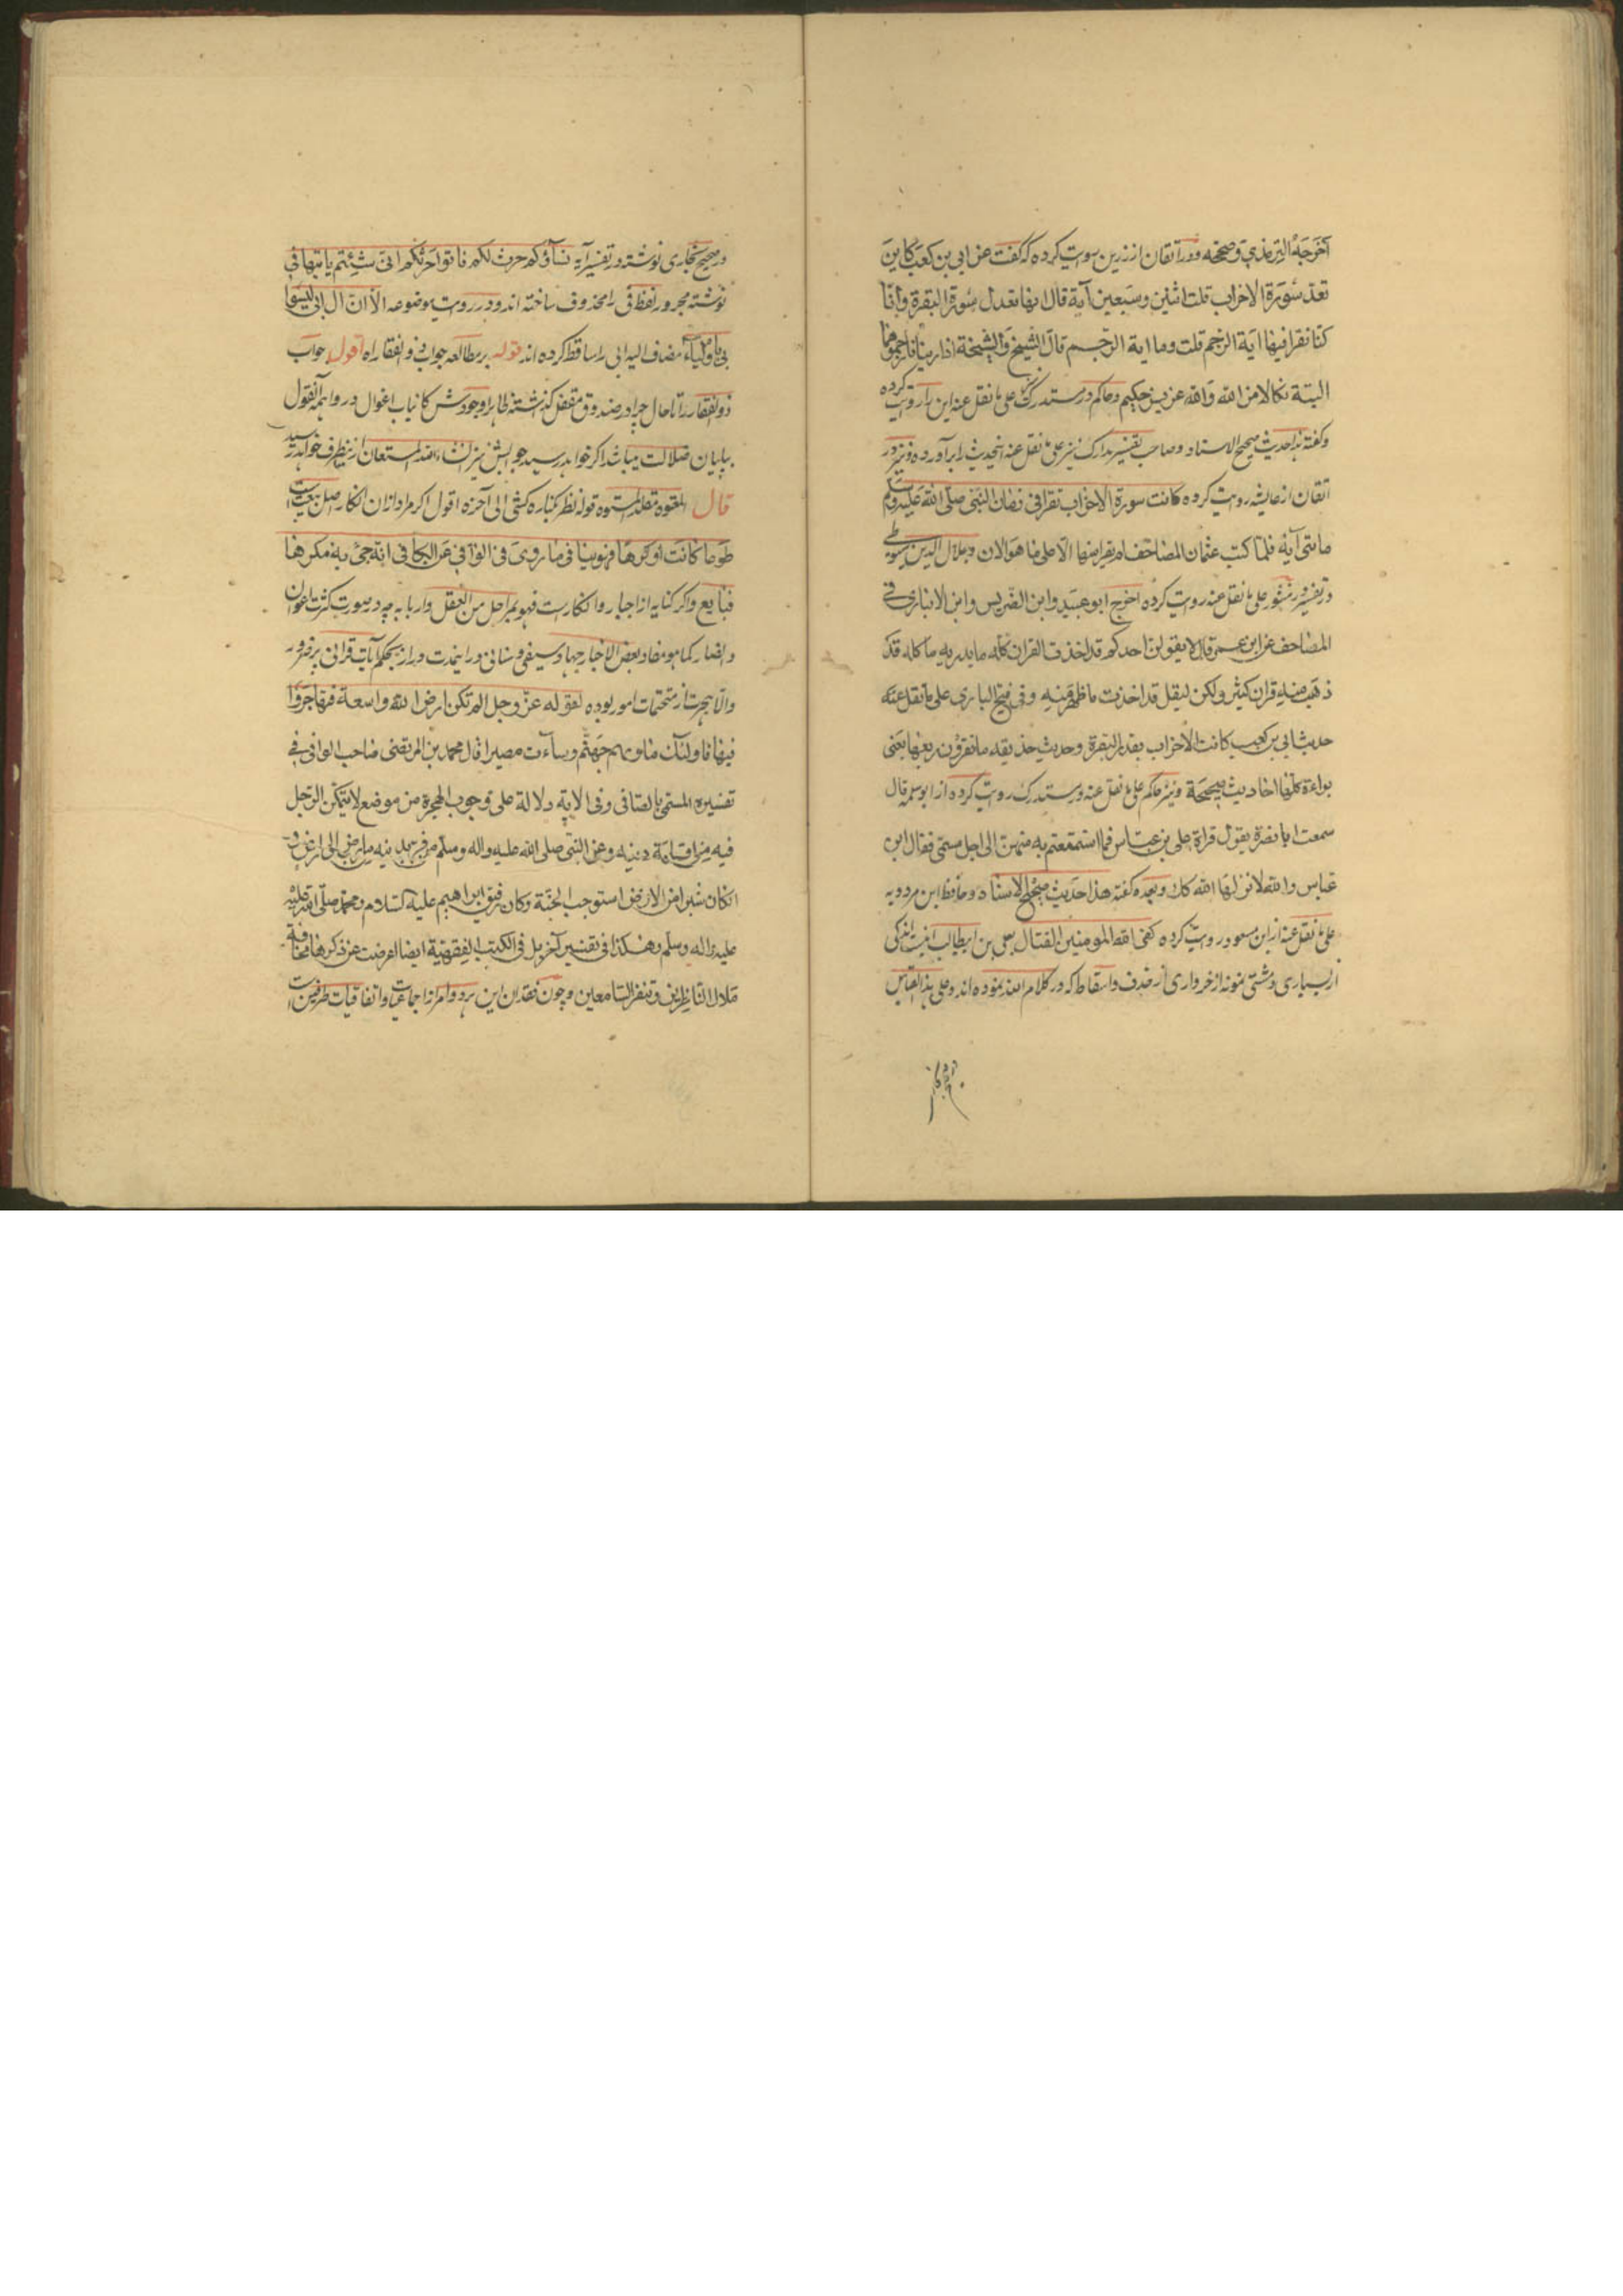 اخرجه الترمذي وصححه ودر اتقان از زرین روایت کرده که گفت عن ابی بن کعب کاین
تعد سورة الاحزاب قلت اثنین وسبعین آیة قال انها تعدل سورة البقرة وانا
کنا نقرا فیها آیة الرجم قلت وما ایة الرجم قال الشیخ والشیخة اذا زنیا فارجموهما
البتة نکالا من الله والله عزیز حکیم وحاکم در مستدرک علی ما نقل عنه این را روایت کرده
وگفته هذا حدیث صحیح الاسناد وصاحب تفسیر مدارک نیز علی ما نقل عنه اینحدیث را برآورده ونیز در
اتقان از عایشه روایت کرده کانت سورة الاحزاب تقرا فی زمان النبی صلی الله علیه وسلم
مائتی آیة فلما کتب عثمان المصاحف لم یقرا منها الا علی ما هو الان وجلال الدین سیوطی
در تفسیر در منثور علی ما نقل عنه روایت کرده اخرج ابو عبید وابن الضریس وابن الانباری فی
المصاحف عن ابن عمر قال لا یقولن احدکم قد اخذت القران کله ما یدریه ما کله قد
ذهب منه قران کثیر ولکن لیقل قد اخذت ما ظهر منه وفی فتح الباری علی ما نقل عنه
حدیث ابی بن کعب کانت الاحزاب بقدر البقرة وحدیث حذیفة ما تقرؤن ربعها یعنی
براءة کلها احادیث صحیحة ونیز حاکم علی ما نقل عنه در مستدرک روایت کرده از ابو سلمه قال
سمعت ابا نضرة یقول قراة علی بن عباس فما استمتعتم به منهن الی اجل مسمی فقال ابن
عباس والله لانزلها الله کک وبعده گفته هذا حدیث صحیح الاسناد وحافظ ابن مردویه
علی ما نقل عنه از ابن مسعود روایت کرده کفی الله المومنین القتال بعلی بن ابیطالب اینست اندکی
از بسیاری ومشتی نمونه از خرواری از حذف واسقاط که در کلام الله نموده اند وعلی هذا القیاس
در صحیح بخاری نوشته در تفسیر آیه نساؤکم حرث لکم فاتوا حرثکم انی شئتم یاتیها فی
نوشته مجرور لفظ فی را محذوف ساخته اند ودر روایت موضوعه الا ان ال ابی لیسوا
بی باولیاء مضاف الیه ابی را ساقط کرده اند قوله بر مطالعه جواب ذو الفقار اه اقول جواب
ذو الفقار را تا حال چرا در صندوق مقفل گذاشتند ظاهرا وجودش کانیاب اغوال در واهمه الفقول
بپایان ضلالت میباشد اگر خواهد رسید جوابش نیز انشاء الله المستعان از ینطرف خواهد رسید
قال المعتوه مقلد المشتوه قوله نظر بکناره کشی الی آخره اقول اکر مراد از ان انکار اصل بیعت است
طوعا کانت او کرها فهو ینافی ما روی فی الوافی عن الکافی انه جیء به مکرها
فبایع واکر کنایه از اجبار وانکار است فهو بمراحل من العقل واربابه چه در صورت کثرت اعوان
وانصار کما هو مفاد بعض الاخبار جهاد سیفی وسنانی در اینمدت دراز بحکم آیات قرانی بر ضرور
والا هجرت از متحتمات امور بوده لقوله عز وجل الم تکن ارض الله واسعة فتهاجروا
فیها فاولئک ماویهم جهنم وساءت مصیرا قال محمد بن المرتضی صاحب الوافی فی
تفسیره المسمی بالصافی وفی الایة دلالة علی وجوب الهجرة من موضع لا یتمکن الرجل
فیه من اقامة دینه وعن النبی صلی الله علیه واله وسلم من فر بدینه من ارض الی ارض و
ان کان شبرا من الارض استوجب الجنة وکان رفیق ابراهیم علیه السلام ومحمد صلی الله علیه
علیه واله وسلم وهکذا فی تفسیر آخر بل فی الکتب الفقهیة ایضا اعرضت عن ذکرها مخافة
ملال الناظرین وتنفر السامعین وچون فقدان این هر دو امر از اجماعیات واتفاقیات طرفین است